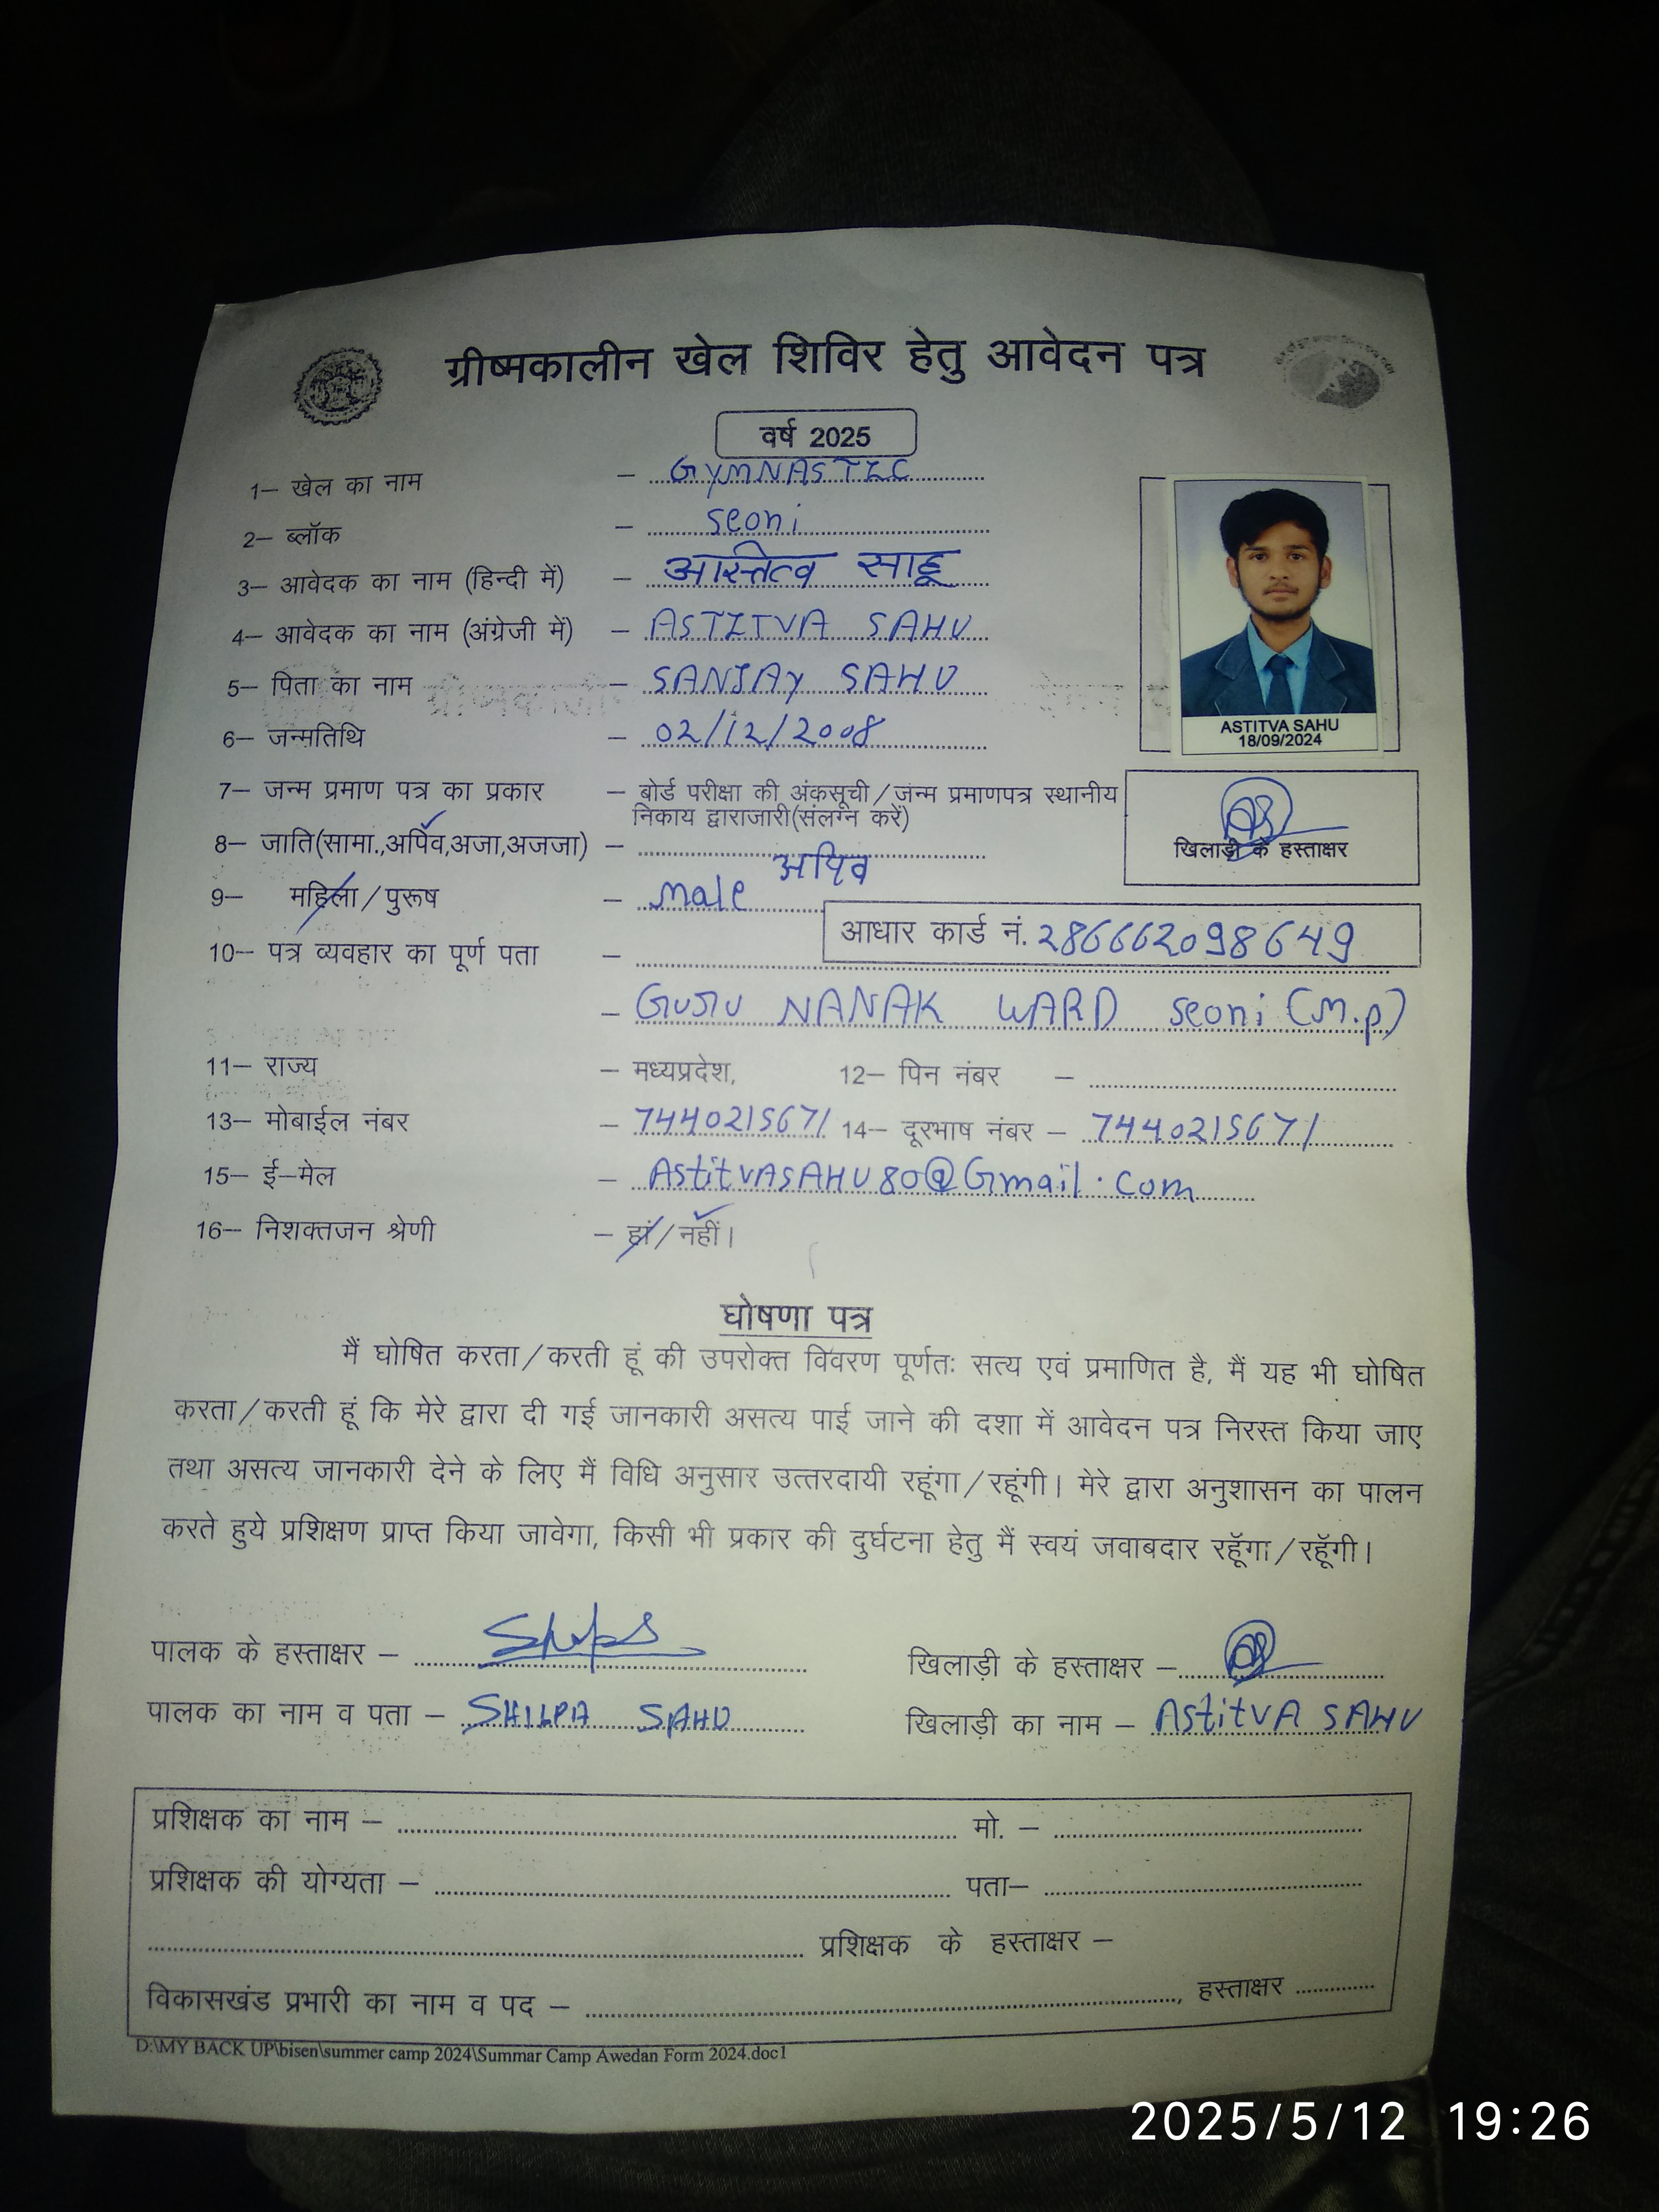 ग्रीष्मकालीन खेल शिविर हेतु आवेदन पत्र
वर्ष 2025
1– खेल का नाम – GYMNASTIC
2– ब्लॉक – seoni
3– आवेदक का नाम (हिन्दी में) – अस्तित्व साहू
4– आवेदक का नाम (अंग्रेजी में) – ASTITVA SAHU
5– पिता का नाम – SANJAY SAHU
6– जन्मतिथि – 02/12/2008
ASTITVA SAHU
18/09/2024
7– जन्म प्रमाण पत्र का प्रकार – बोर्ड परीक्षा की अंकसूची/जन्म प्रमाणपत्र स्थानीय
निकाय द्वाराजारी(संलग्न करें)
खिलाड़ी के हस्ताक्षर
8– जाति(सामा.,अपिव,अजा,अजजा) – अपिव
9– महिला/पुरूष – male
आधार कार्ड नं. 286662098649
10– पत्र व्यवहार का पूर्ण पता –
– GURU NANAK WARD seoni (M.p)
11– राज्य – मध्यप्रदेश, 12– पिन नंबर –
13– मोबाईल नंबर – 7440215671 14– दूरभाष नंबर – 7440215671
15– ई–मेल – AstitVASAHU80@Gmail.com
16– निशक्तजन श्रेणी – हां/नहीं।
घोषणा पत्र
मैं घोषित करता/करती हूं की उपरोक्त विवरण पूर्णतः सत्य एवं प्रमाणित है, मैं यह भी घोषित
करता/करती हूं कि मेरे द्वारा दी गई जानकारी असत्य पाई जाने की दशा में आवेदन पत्र निरस्त किया जाए
तथा असत्य जानकारी देने के लिए मैं विधि अनुसार उत्तरदायी रहूंगा/रहूंगी। मेरे द्वारा अनुशासन का पालन
करते हुये प्रशिक्षण प्राप्त किया जावेगा, किसी भी प्रकार की दुर्घटना हेतु मैं स्वयं जवाबदार रहूॅगा/रहूॅगी।
पालक के हस्ताक्षर – खिलाड़ी के हस्ताक्षर –
पालक का नाम व पता – SHILPA SAHU खिलाड़ी का नाम – AstitVA SAHU
प्रशिक्षक का नाम – मो. –
प्रशिक्षक की योग्यता – पता–
प्रशिक्षक के हस्ताक्षर –
विकासखंड प्रभारी का नाम व पद – , हस्ताक्षर
D:\MY BACK UP\bisen\summer camp 2024\Summar Camp Awedan Form 2024.doc1
2025/5/12 19:26